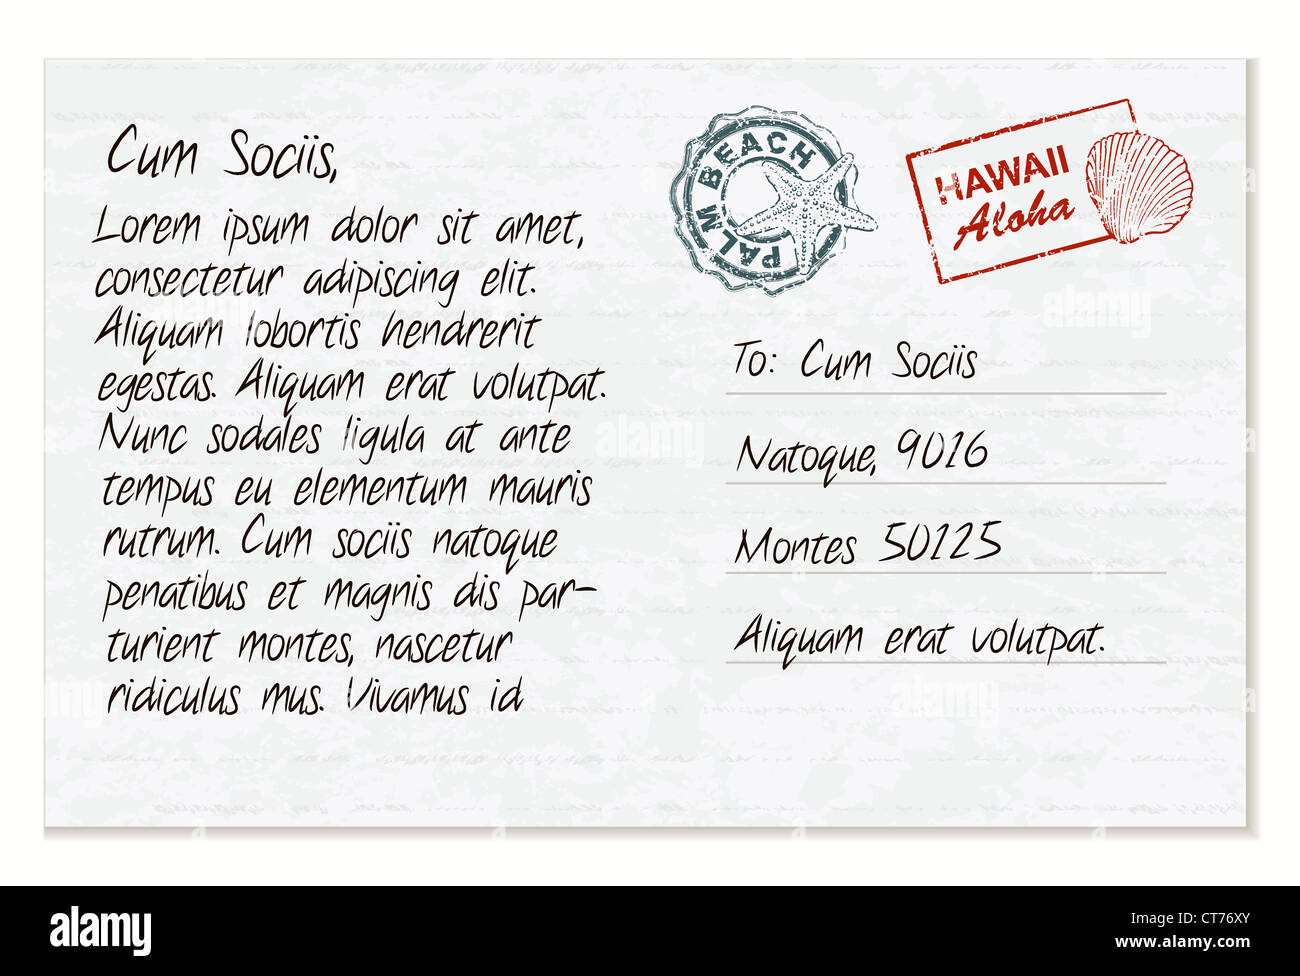 Cum Sociis,
Lorem ipsum dolor sit amet,
consectetur adipiscing elit.
Aliquam lobortis hendrerit
egestas. Aliquam erat volutpat.
Nunc sodales ligula at ante
tempus eu elementum mauris
rutrum. Cum sociis natoque
penatibus et magnis dis par-
turient montes, nascetur
ridiculus mus. Vivamus id
PALM BEACH
HAWAII
Aloha
To: Cum Sociis
Natoque, 9016
Montes 50125
Aliquam erat volutpat.
alamy
alamy
alamy
alamy
alamy
Image ID: CT76XY
www.alamy.com